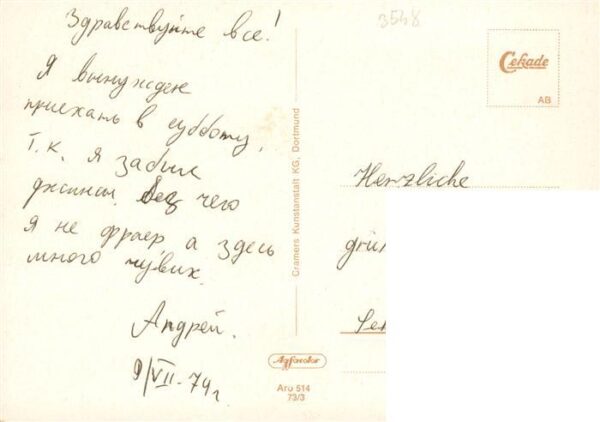 Здравствуйте все!
Я вынужден
приехать в субботу,
т.к. я забыл
джинсы. Без чего
я не фраер, а здесь
много чувих.
Андрей.
9/VII-74г
3548
Cekade
AB
Cramers Kunstanstalt KG, Dortmund
Herzliche
Agfacolor
Aro 514
73/3